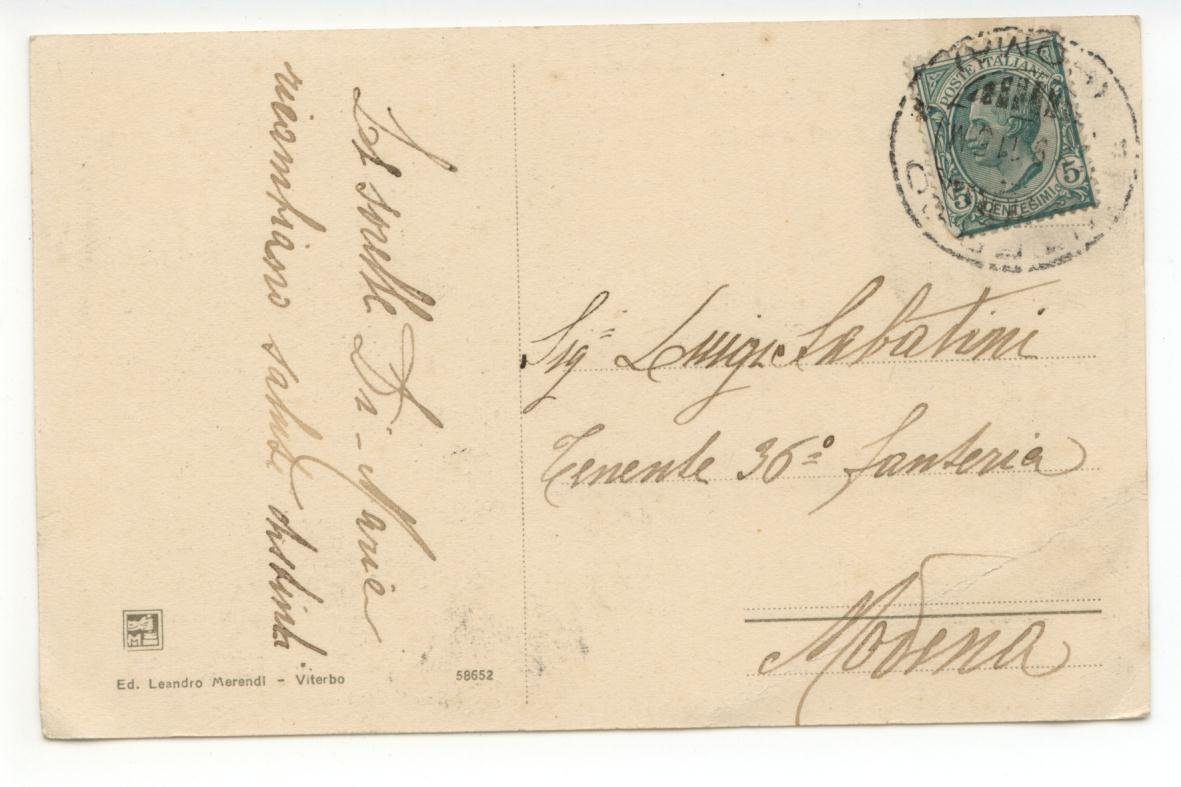 Le sorelle Di-Maria
ricambiano saluti distinti.
Sig. Luigi Sabatini
Tenente 36º fanteria
Modena
POSTE ITALIANE
5 CENTESIMI 5
Ed. Leandro Merendi - Viterbo
58652